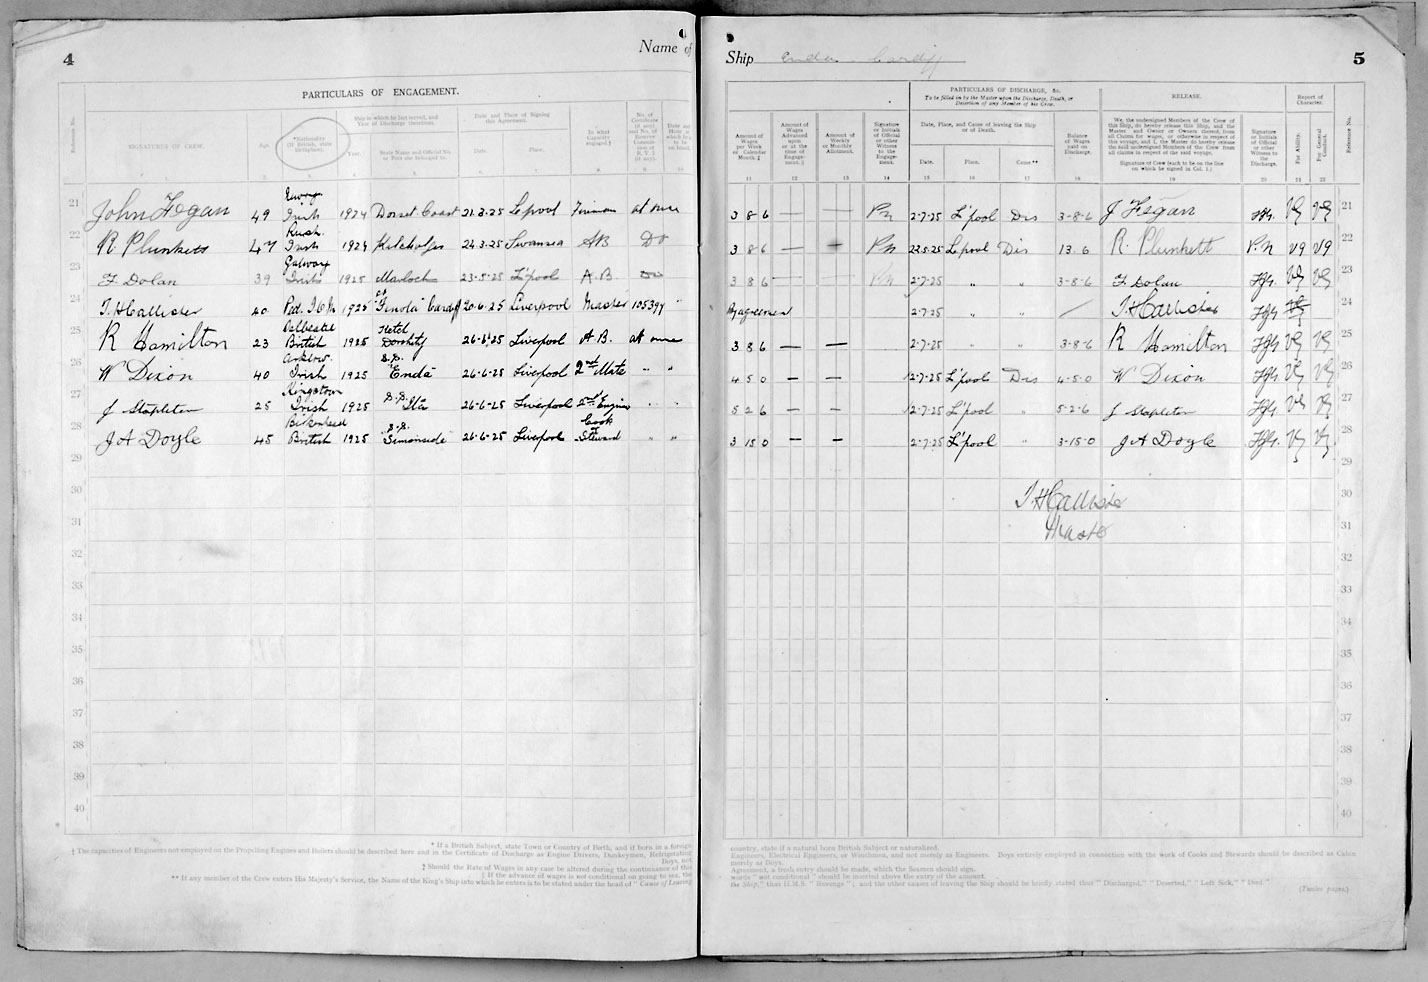 4
Name of
Ship Enda Cardiff
5
PARTICULARS OF ENGAGEMENT.
PARTICULARS OF DISCHARGE, &c.
To be filled in by the Master upon the Discharge, Death, or Desertion of any Member of his Crew.
RELEASE.
Report of Character.
Reference No.
SIGNATURES OF CREW.
Age.
*Nationality (If British, state birthplace).
Ship in which he last served, and Year of Discharge therefrom.
Year.
State Name and Official No. or Port she belonged to.
Date and Place of Signing this Agreement.
Date.
Place.
In what Capacity engaged.†
Amount of Wages per Week or Calendar Month.‡
Amount of Wages Advanced upon or at the time of Engagement.§
Amount of Weekly or Monthly Allotment.
Signature or Initials of Official or other Witness to the Engagement.
Date, Place, and Cause of leaving the Ship or of Death.
Date.
Place.
Cause.**
Balance of Wages paid on Discharge.
We, the undersigned Members of the Crew of this Ship, do hereby release this Ship, and the Master and Owner or Owners thereof, from all Claims for wages, or otherwise in respect of this voyage; and I, the Master do hereby release the said undersigned Members of the Crew from all claims in respect of the said voyage.
Signature of Crew (each to be on the line on which he signed in Col. 1.)
Signature or Initials of Official or other Witness to the Discharge.
For Ability.
For General Conduct.
Reference No.
11 12 13 14 15 16 17 18 19 20 21 22
21 John Fegan 49 Irish 1924 Dorset Coast 21.3.25 L'pool Fireman at once 3 8 6 — — P.N 2-7-25 L'pool Dis 3-8-6 J Fegan VG VG 21
22 R. Plunkett 47 Rush. Irish 1924 24.3.25 Swansea AB Do 3 8 6 — P.N 22.5.25 L'pool Dis 13.6 R. Plunkett P.N VG VG 22
23 F Dolan 39 Galway Irish 1925 23-5-25 L'pool A.B. Do 3 8 6 — P.N 2-7-25 " " 3-8-6 F. Dolan VG VG 23
24 T. H Callister 40 1925 "Finola" Cardiff 20-6-25 Liverpool Master 105397 " By agreement 2-7-25 " " T H Callister 24
25 R Hamilton 23 Dalbeattie British 1925 26-6-25 Liverpool A.B. at once 3 8 6 — — 2-7-25 " " 3-8-6 R Hamilton VG VG 25
26 W Dixon 40 Arklow. Irish 1925 S.S. "Enda" 26-6-25 Liverpool 2nd Mate " " 4 5 0 — — 2-7-25 L'pool Dis 4-5-0 W Dixon VG VG 26
27 J Stapleton 25 Kingstown Irish 1925 S.S. 26-6-25 Liverpool 2nd Engineer " " 5 2 6 — — 2-7-25 L'pool " 5-2-6 J Stapleton VG VG 27
28 J A Doyle 45 Birkenhead British 1925 S.S. 26-6-25 Liverpool Cook & Steward " " 3 15 0 — — 2-7-25 L'pool " 3-15-0 J A Doyle VG VG 28
29 29
30 T. H Callister 30
31 Master 31
32 32
33 33
34 34
35 35
36 36
37 37
38 38
39 39
40 40
* If a British Subject, state Town or Country of Birth, and if born in a foreign
† The capacities of Engineers not employed on the Propelling Engines and Boilers should be described here and in the Certificate of Discharge as Engine Drivers, Donkeymen, Refrigerating
Boys, not
‡ Should the Rate of Wages in any case be altered during the continuance of this
§ If the advance of wages is not conditional on going to sea, the
** If any member of the Crew enters His Majesty's Service, the Name of the King's Ship into which he enters is to be stated under the head of "Cause of Leaving
country, state if a natural born British Subject or naturalized.
Engineers, Electrical Engineers, or Winchmen, and not merely as Engineers. Boys entirely employed in connection with the work of Cooks and Stewards should be described as Cabin
merely as Boys.
Agreement, a fresh entry should be made, which the Seamen should sign.
words "not conditional" should be inserted above the entry of the amount.
the Ship," thus H.M.S. "Revenge"; and the other causes of leaving the Ship should be briefly stated thus "Discharged," "Deserted," "Left Sick," "Died."
(Twelve pages.)